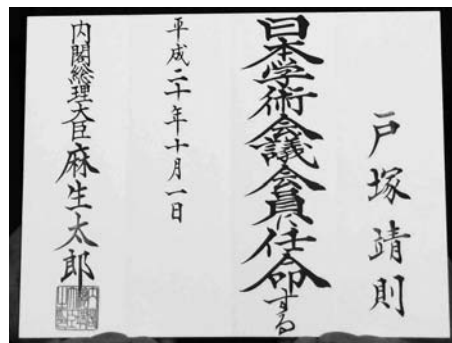 戸塚靖則
日本学術会議会員に任命する
平成二十年十月一日
内閣総理大臣麻生太郎